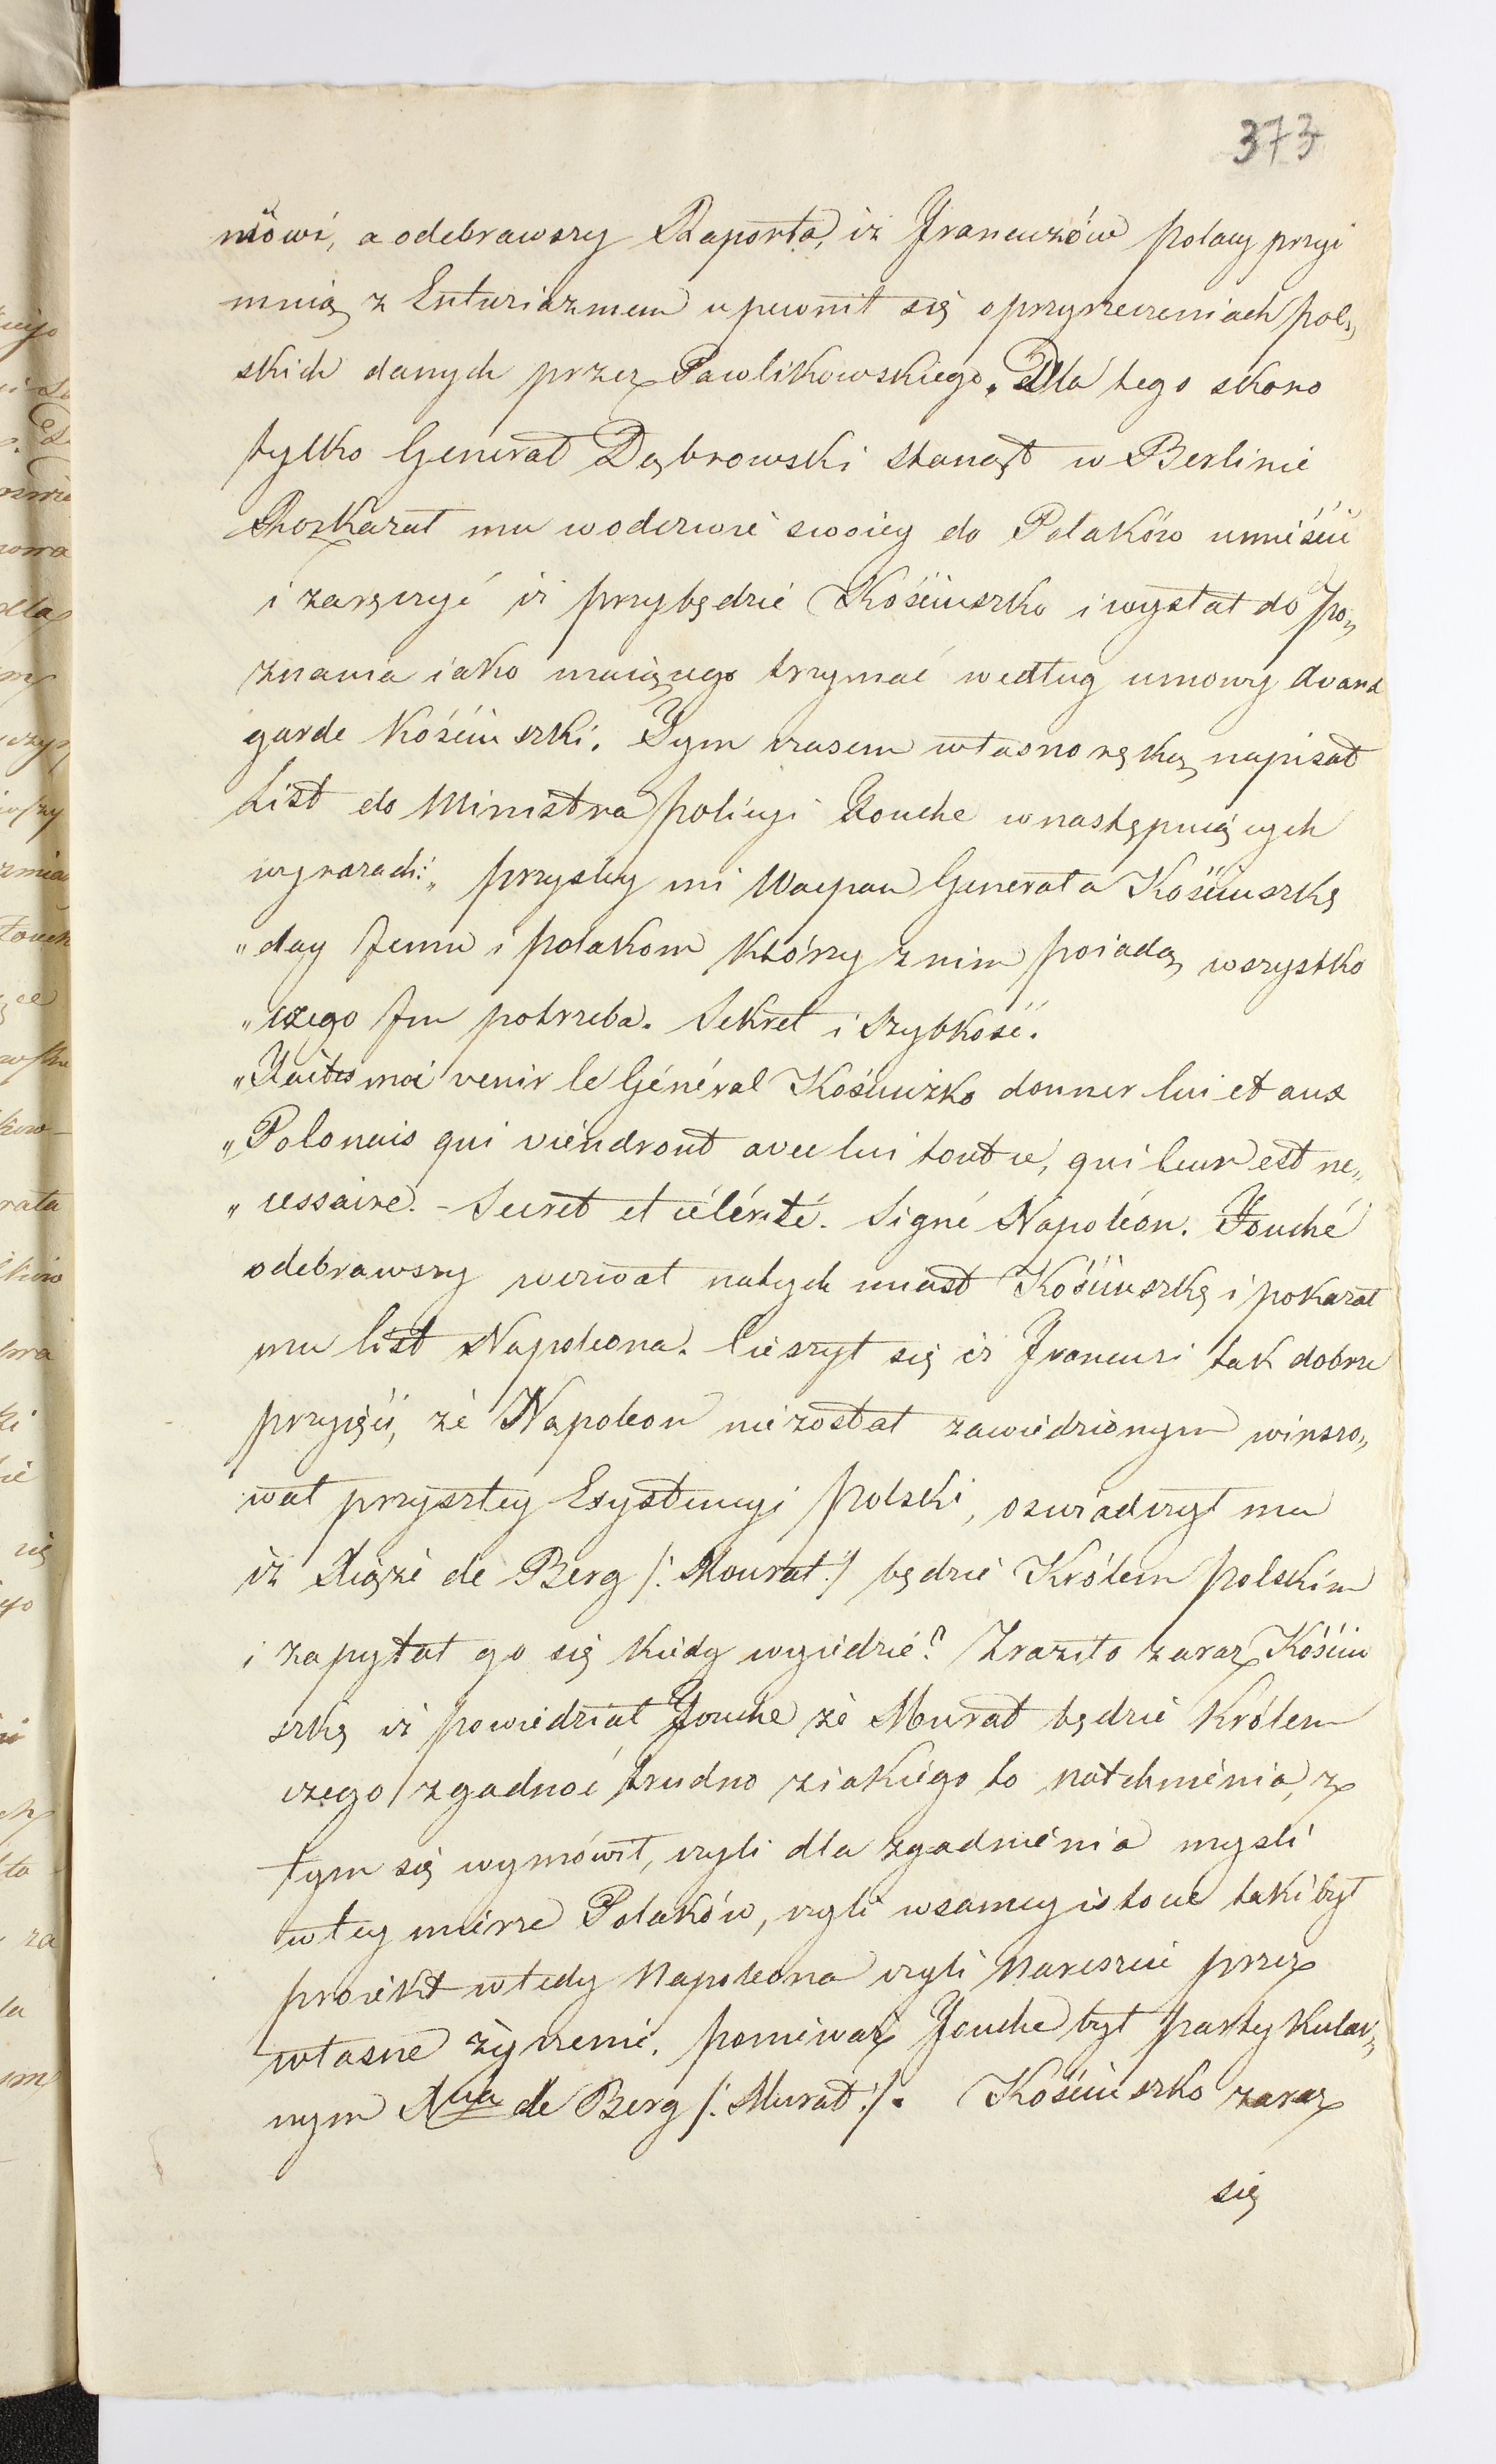 373
mówi, a odebrawszy Raporta, iż Francuzów polacy przyi
mnią z Enturiazmem upewnił się o przyrzeczeniach pol„
skich danych przez Pawlikowskiego. Dla tego skoro
tylko Generał Dąbrowski stanął w Berlinie
Rozkazał mu w odezwie swoiey do Polaków umieścić
i zaręczyć iż przybędzie Kościuszko i wysłał do Po„
znania iako maiącego trzymać według umowy Avant
garde Kościuszki. Tym czasem własno ręką napisał
List do Ministra policyi Fouche w następuiących
wyrazach: „przysley mi Wacpan Generała Kościuszkę
„day Jemu i polakom którzy z nim poiadą wszystko
„czego Jm potrzeba. Sekret i Szybkość.
„Faites moi venir le Général Kościuszko donner lui et aux
„Polonais qui viendront avec lui tout ce, qui leur est ne„
„cessaire. - Secret et célérité. Signé Napoléon. Fouché
odebrawszy wezwał natych miast Kościuszkę i pokazał
mu list Napoleona. Cieszył się iż Francuzi tak dobrze
przyięci, że Napoleon nie został zawiedzionym winszo„
wał przyszłey Exystencyi Polski, oświadczył mu
iż Xiąże de Berg /: Mourat :/ będzie Królem polskim
i zapytał go się kiedy wyiedzie? Zraziło zaraz Kościu
szkę iż powiedział Fouche że Murat będzie Królem
czego zgadnąć trudno z iakiego to natchnienia, z
tym się wymówił, czyli dla zgadnienia mysli
w tey mierze Polaków, czyli w samey istocie taki był
proiekt wtedy Napoleona czyli nareszcie przez
własne życzenie, ponieważ Fouche był partykular„
nym Xcia de Berg /: Murat :/. Kościuszko zaraz
się